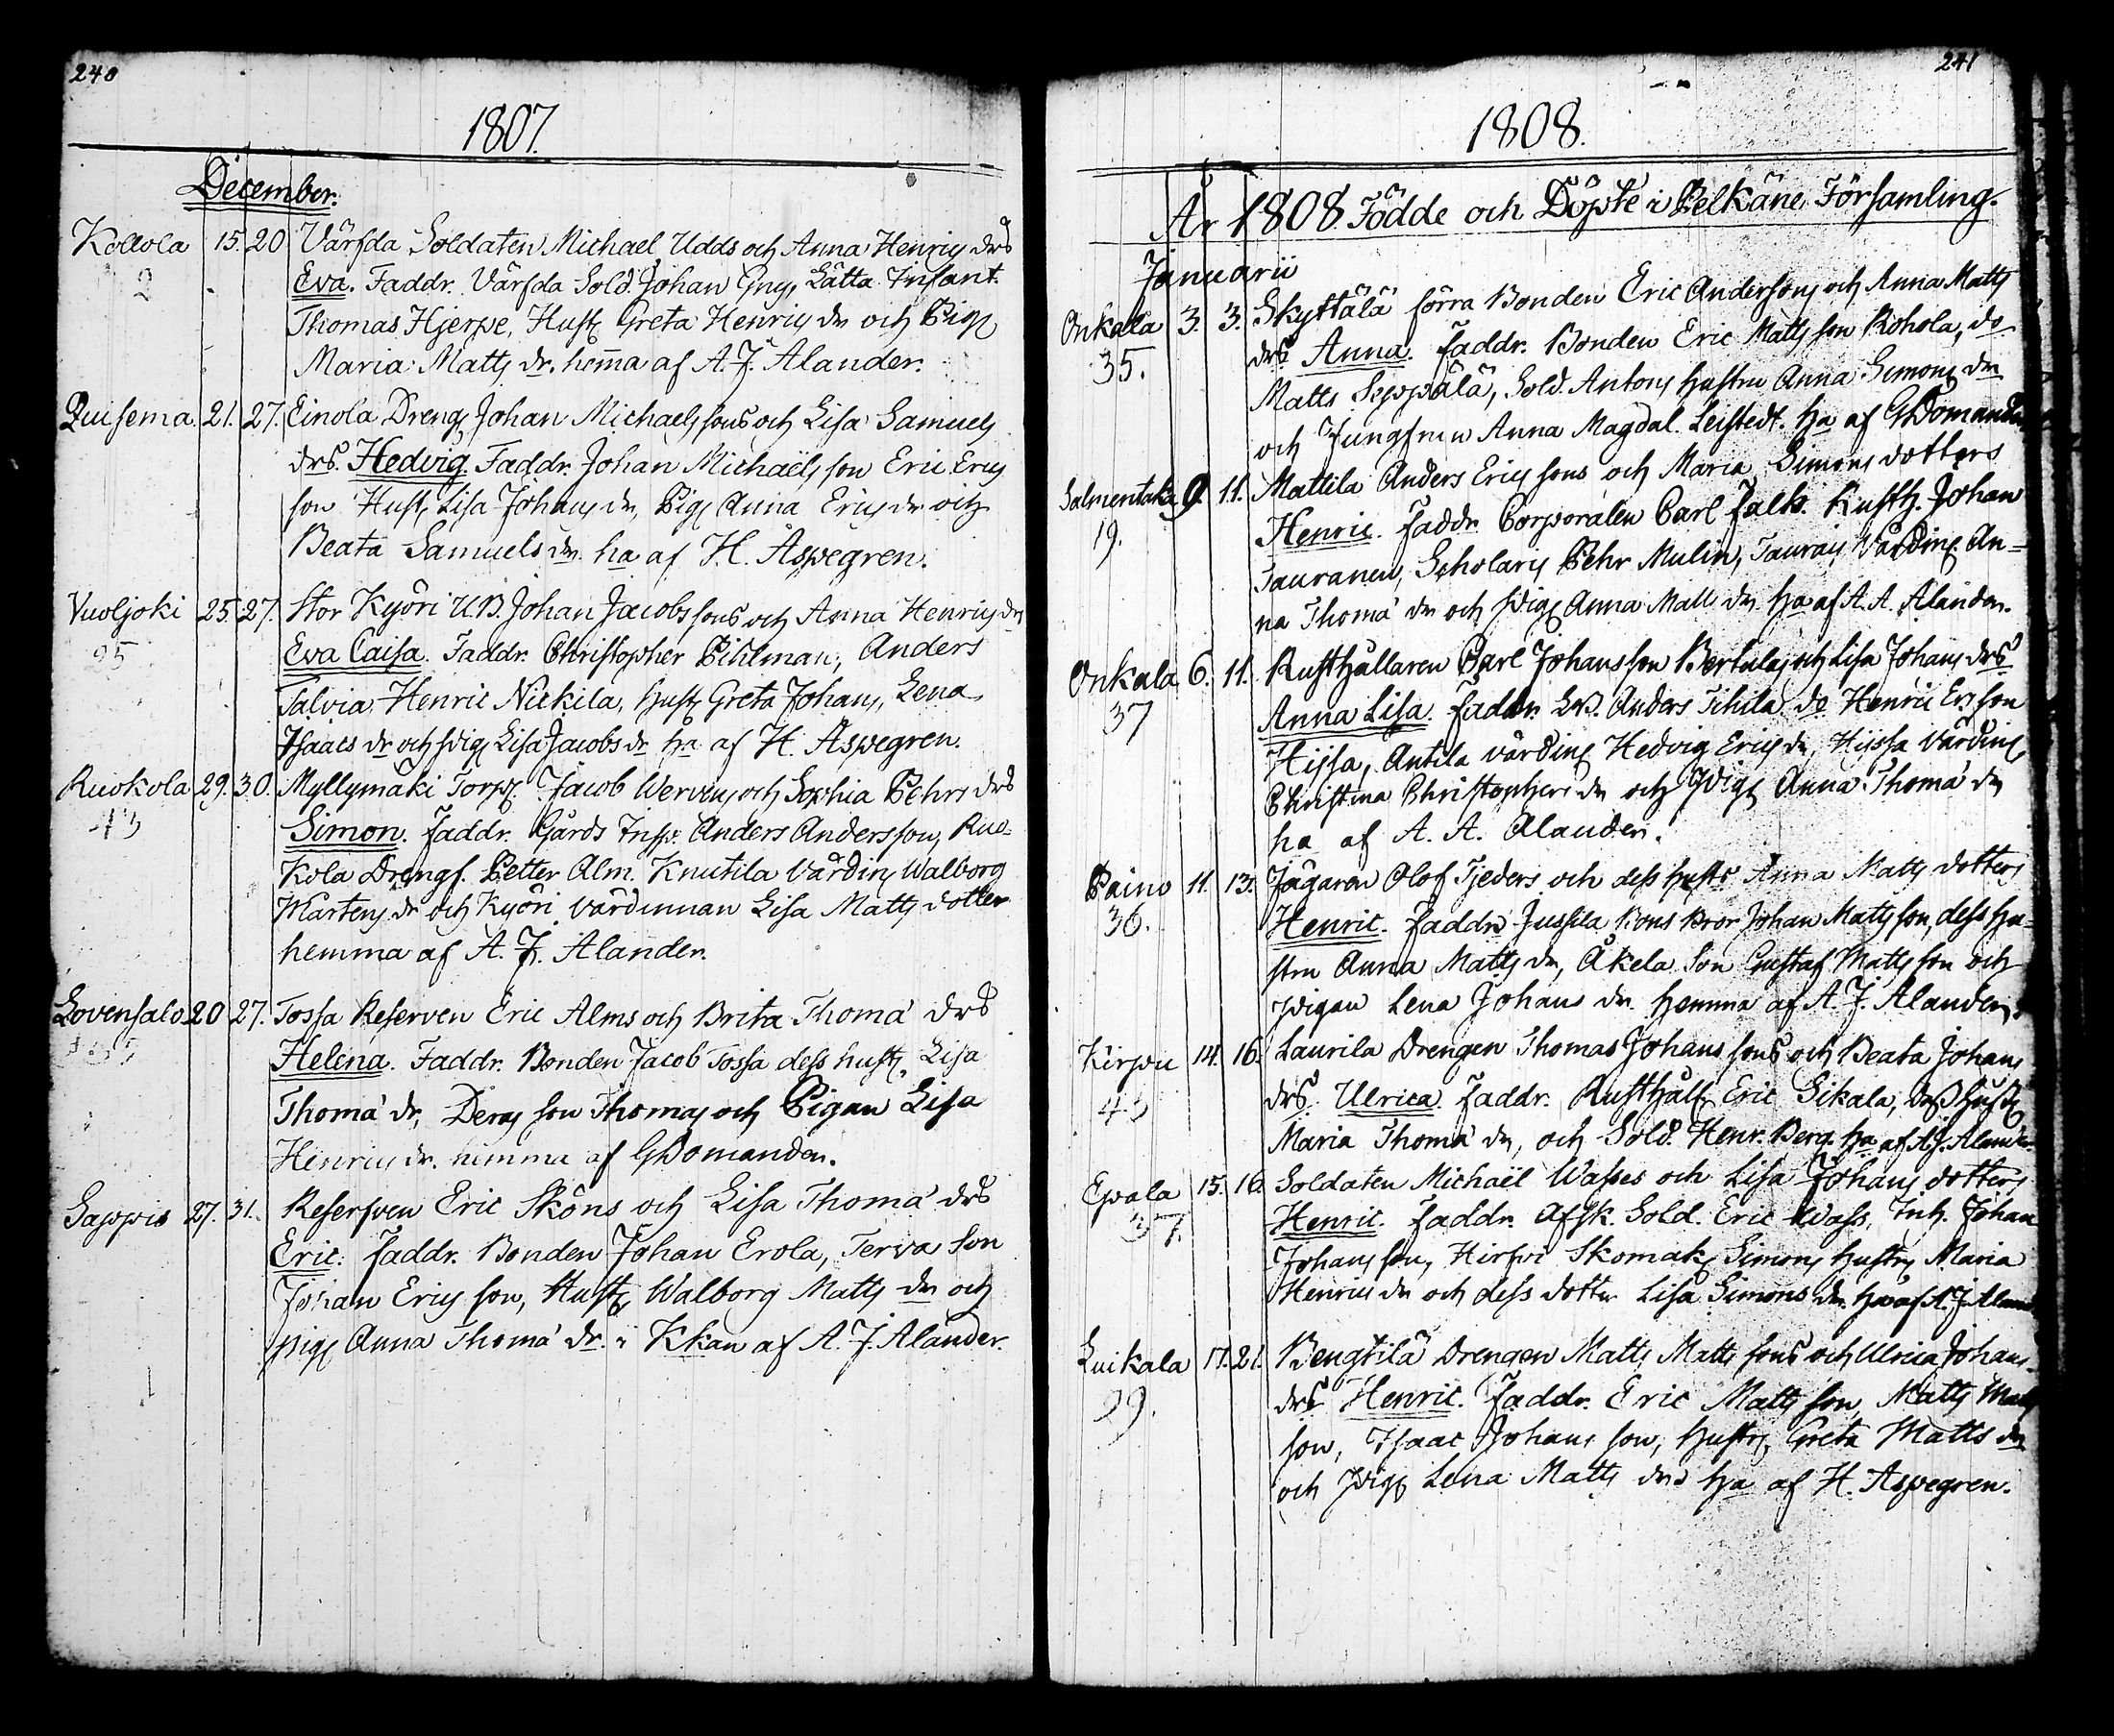 240
1807.
December.
Kollola 15. 20 Värfda Soldaten Michael Udds och Anna Henrics drs
2 Eva. Faddr. Värfda Sold. Johan Gny, Lätta Infant.
Thomas Hjerpe, Hust. Greta Henrics dr och Pig.
Maria Matts dr. hem̄a af A. J. Alander.
Quisema 21. 27. Einola Dreng Johan Michaels sons och Lisa Samuels
drs. Hedvig. Faddr. Johan Michaëls son Eric Erics
son Hust. Lisa Johans dr, Pig. Anna Erics dr och
Beata Samuels dr. ha af H. Aspegren.
Vuoljoki 25. 27. Stor Kyöri U.B. Johan Jacobs sons och Anna Henrics drs
25 Eva Caisa. Faddr. Christopher Pihlman, Anders
Talvia, Henric Nickila, hust. Greta Johans, Lena
Isaacs dr och pig. Lisa Jacobs dr ha af H. Aspegren.
Ruokola 29. 30. Myllymäki Torp. Jacob Wervins och Sophia Pehrs drs
43 Simon. Faddr. Gårds Insp. Anders Andersson, Ruo-
kola Drengs. Petter Alm. Knutila Värdin. Walborg
Mårtens dr och Kyöri värdinnan Lisa Matts dotter
hemma af A. J. Alander.
Lovensalo 20 27. Tossa Reserven Eric Alms och Brita Thomæ drs
Helena. Faddr. Bonden Jacob Tossa dess hust. Lisa
Thomæ dr, Deras son Thomas och Pigan Lisa
Henrics dr. hemma af G Domander.
Sappis 27. 31. Reserven Eric Sköns och Lisa Thomæ drs
Eric. Faddr. Bonden Johan Erola, Terva Son
Johan Erics son, Hust. Walborg Matts dr och
pig. Anna Thomæ dr. i Kkan af A. J. Alander.
241
1808.
Ar 1808. Födde och Döpte i Pelkäne Församling.
Januarii
Onkala 3. 3. Skyttälä förra Bonden Eric Andersons och Anna Matts
35. drs. Anna. Faddr. Bonden Eric Matts son Rohola, do
Matts Seppälä, Sold. Antons hustru Anna Simons dr
och Jungfrun Anna Magdal. Leistedt. ha af G Domander
Salmentaka 9. 11. Mattila Anders Erics sons och Maria Simons dotters
19. Henric. Faddr. Corporalen Carl Falk. Rusth. Johan
Tauranen, Scholaris Pehr Mulin, Taurais Värdin. An-
na Thomæ dr och Pig. Anna Matts dr. ha af A. A. Alander.
Onkala 6. 11. Rusthållaren Carl Johansson Bertulas och Lisa Johans drs
37 Anna Lisa. Faddr. Anders Tihila do Henric Ers son
Hissa, Antila värdin. Hedvig Erics dr, Hissa Värdin.
Christina Christophers dr och Pig. Anna Thomæ dr
ha af A. A. Alander.
Painо 11. 13. Jägaren Olof Tjeders och dess hustr. Anna Matts dotters
36. Henric. Faddr. Jussila Bons Bror Johan Matts son, dess hu-
stru Anna Matts dr, Äkela Son Gustaf Matts son och
Pigan Lena Johans dr. hemma af A. J. Alander.
Kirpu 14. 16. Laurila Drengen Thomas Johans sons och Beata Johans
43 drs. Ulrica. Faddr. Rusthåll. Eric Sikala, dess hust.
Maria Thomæ dr, och Sold. Henr. Berg. ha af A. J. Alander.
Epala 15. 16. Soldaten Michaël Wasses och Lisa Johans dotters
37. Henric. Faddr. Afsk. Sold. Eric Wass, Inh. Johan
Johans son, Hirfvi Skomak. Simons hustru Maria
Henrics dr och dess dotter Lisa Simons dr. ha af A. J. Alander
Luikala 17. 21. Bengtilä Drengen Matts Matts sons och Ulrica Johans
29. drs Henric. Faddr. Eric Matts son, Matts Matts
son, Isaac Johans son, hustr. Greta Matts dr
och Pig. Lena Matts dr ha af H. Aspegren.